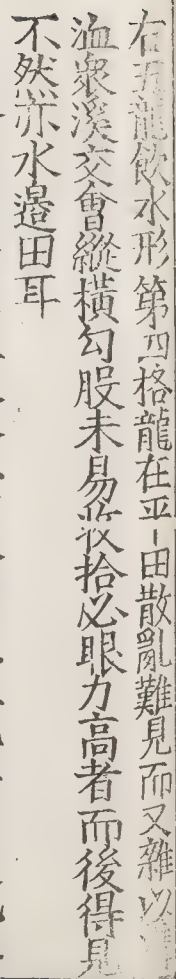 右五龍飲水形第四格龍在平田散亂難見而又雜以溝
洫衆溪交會縱橫勾股未易收拾必眼力高者而後得見
不然亦水邉田耳